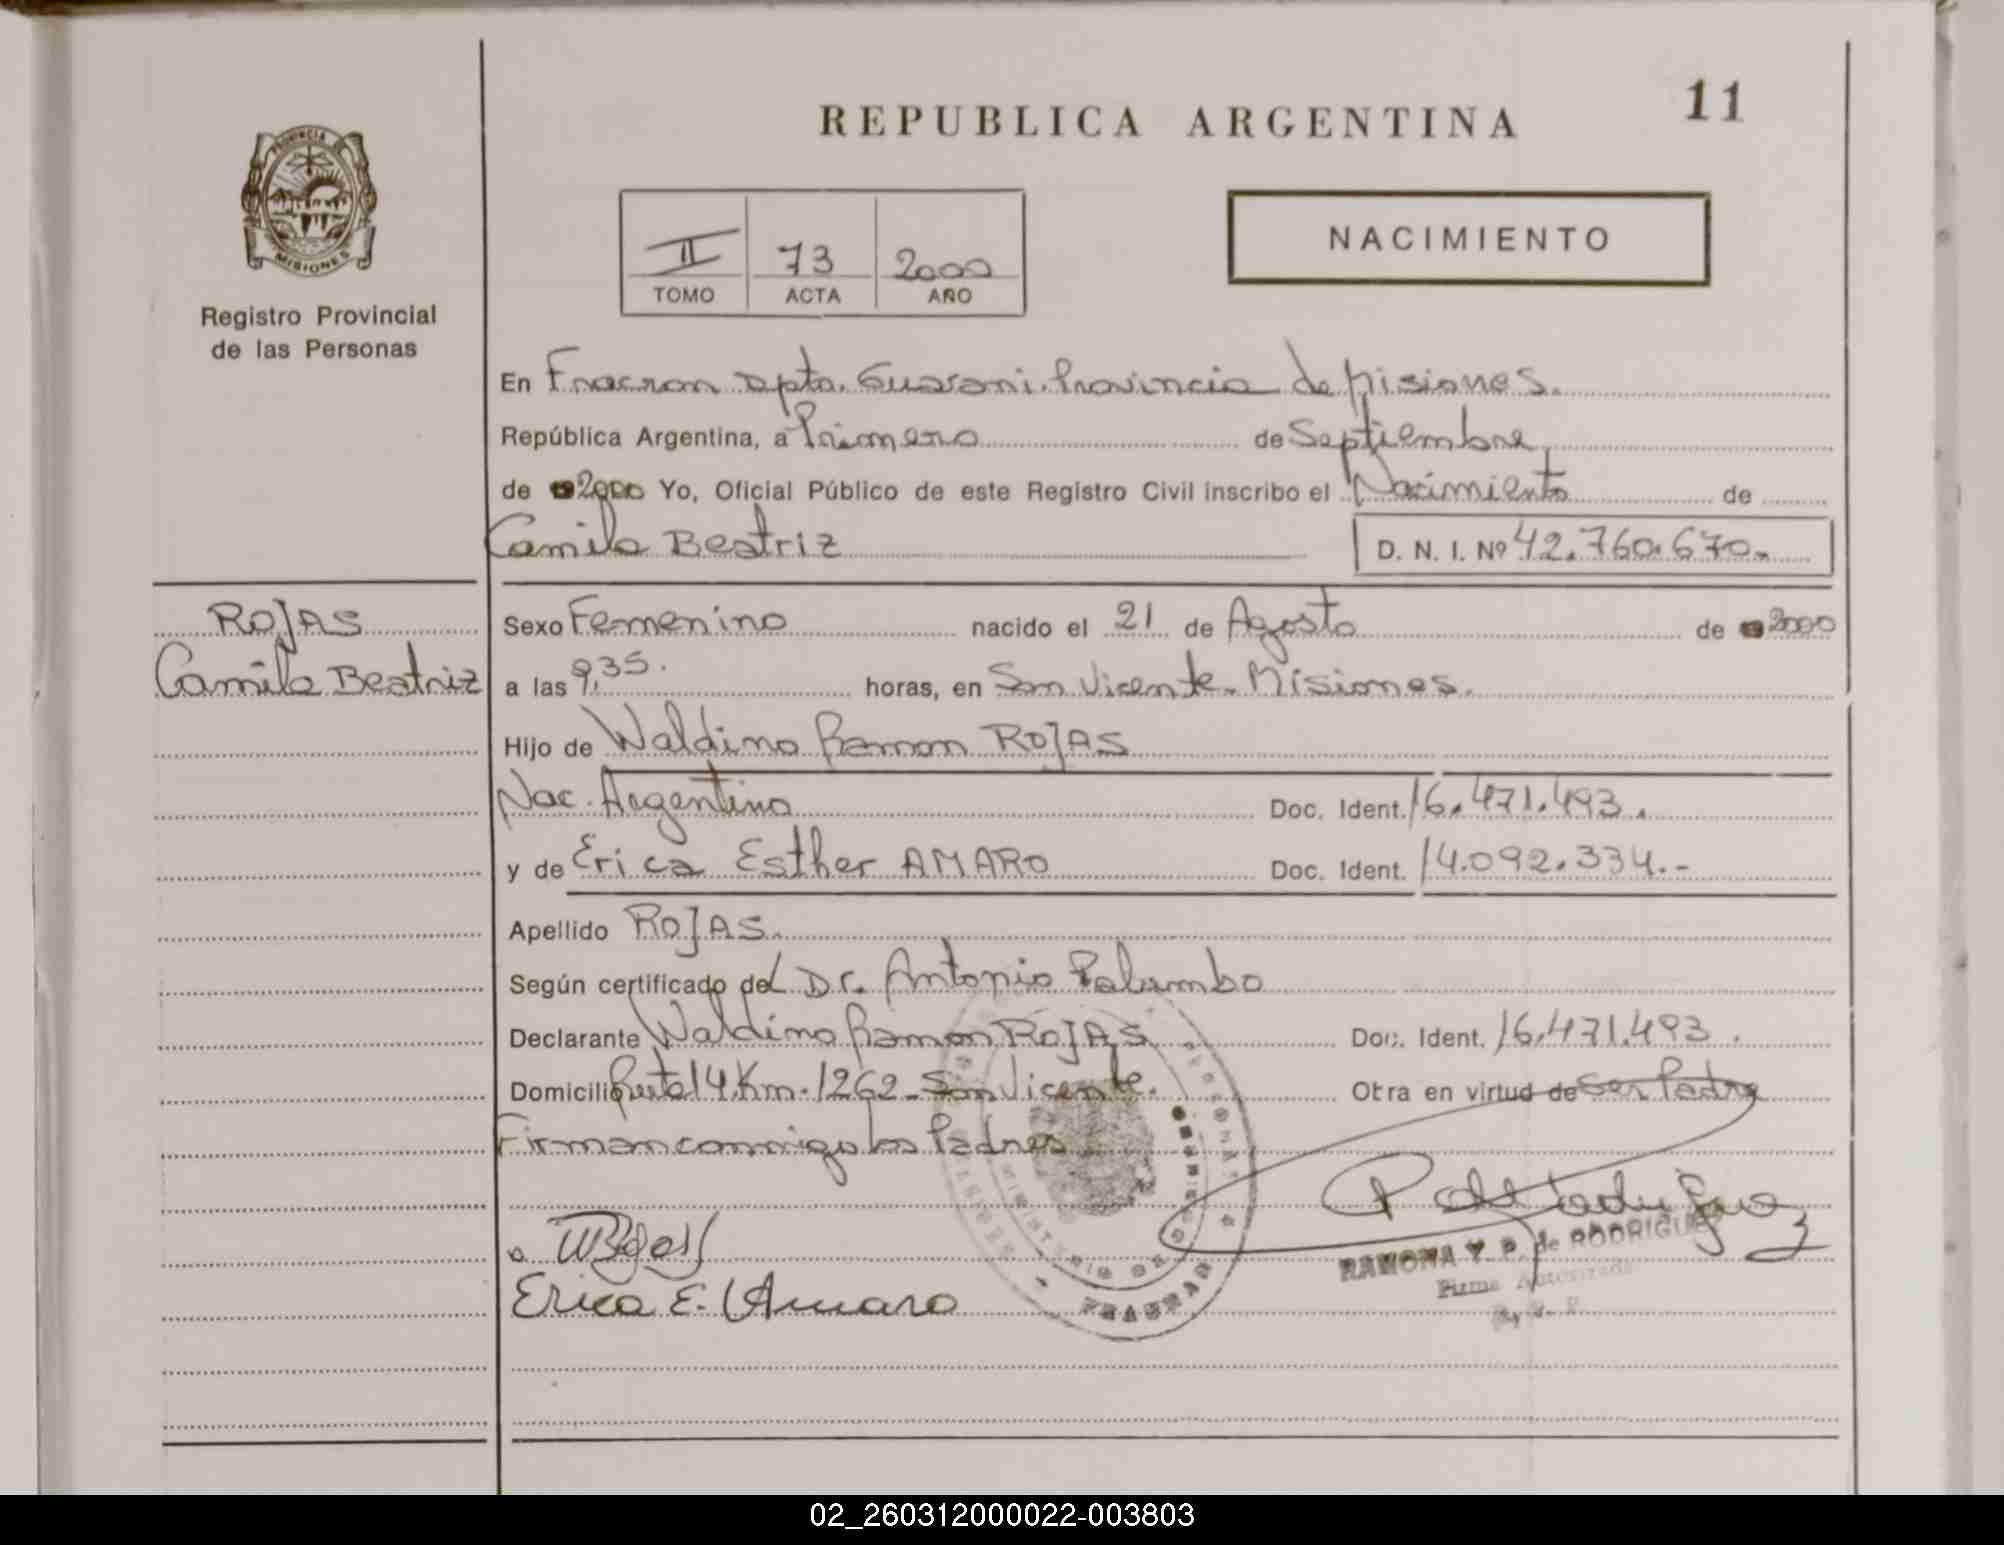 11
REPUBLICA ARGENTINA
PROVINCIA DE
MISIONES
Registro Provincial
de las Personas
II 73 2000
TOMO ACTA AÑO
NACIMIENTO
En Fracran Dpto. Guarani. Provincia de Misiones.
República Argentina, a Primero de Septiembre
de 2000 Yo, Oficial Público de este Registro Civil inscribo el Nacimiento de
Camila Beatriz D. N. I. Nº 42.760.670.-
ROJAS
Camila Beatriz
Sexo Femenino nacido el 21 de Agosto de 2000
a las 9,35. horas, en San Vicente. Misiones.
Hijo de Waldino Ramon ROJAS
Nac. Argentino Doc. Ident. 16.471.493.
y de Erica Esther AMARO Doc. Ident. 14.092.334.-
Apellido ROJAS.
Según certificado del Dr. Antonio Palumbo
Declarante Waldino Ramon ROJAS Doc. Ident. 16.471.493.
Domicilio Ruta 14 Km. 1262 - San Vicente. Obra en virtud de Ser Padre
Firman conmigo los Padres
Erica E. Amaro
RAMONA Y. P. de RODRIGUEZ
Firma Autorizada
FRACRAN
02_260312000022-003803